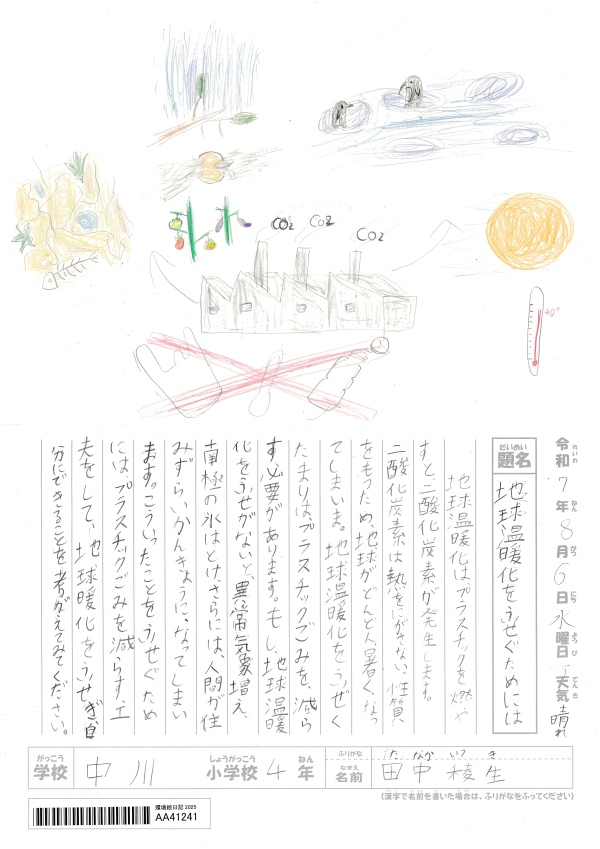 CO2
CO2
CO2
40°
令和7年8月6日水曜日 天気 晴れ
れいわ ねん がつ にち ようび てんき
だいめい
題名
地球温暖化をふせぐためには
地球温暖化はプラスチックを燃や
すと二酸化炭素が発生します。
二酸化炭素は熱をにがさない性質
をもつため、地球がどんどん暑くなっ
てしまいます。地球温暖化をふせぐ
ためにはプラスチックごみを減ら
す必要があります。もし、地球温暖
化をふせがないと、異常気象増え、
南極の氷はとけ、さらには、人間が住
みずらいかんきょうに、なってしまい
ます。こういったことをふせぐため
にはプラスチックごみを減らす、工
夫をして、地球暖化をふせぎ、自
分にできることを考がえてみてください。
がっこう
学校
中川
しょうがっこう
小学校
4
ねん
年
ふりがな
たなか いつき
なまえ
名前
田中 稜生
(漢字で名前を書いた場合は、ふりがなをふってください)
環境絵日記 2025
AA41241